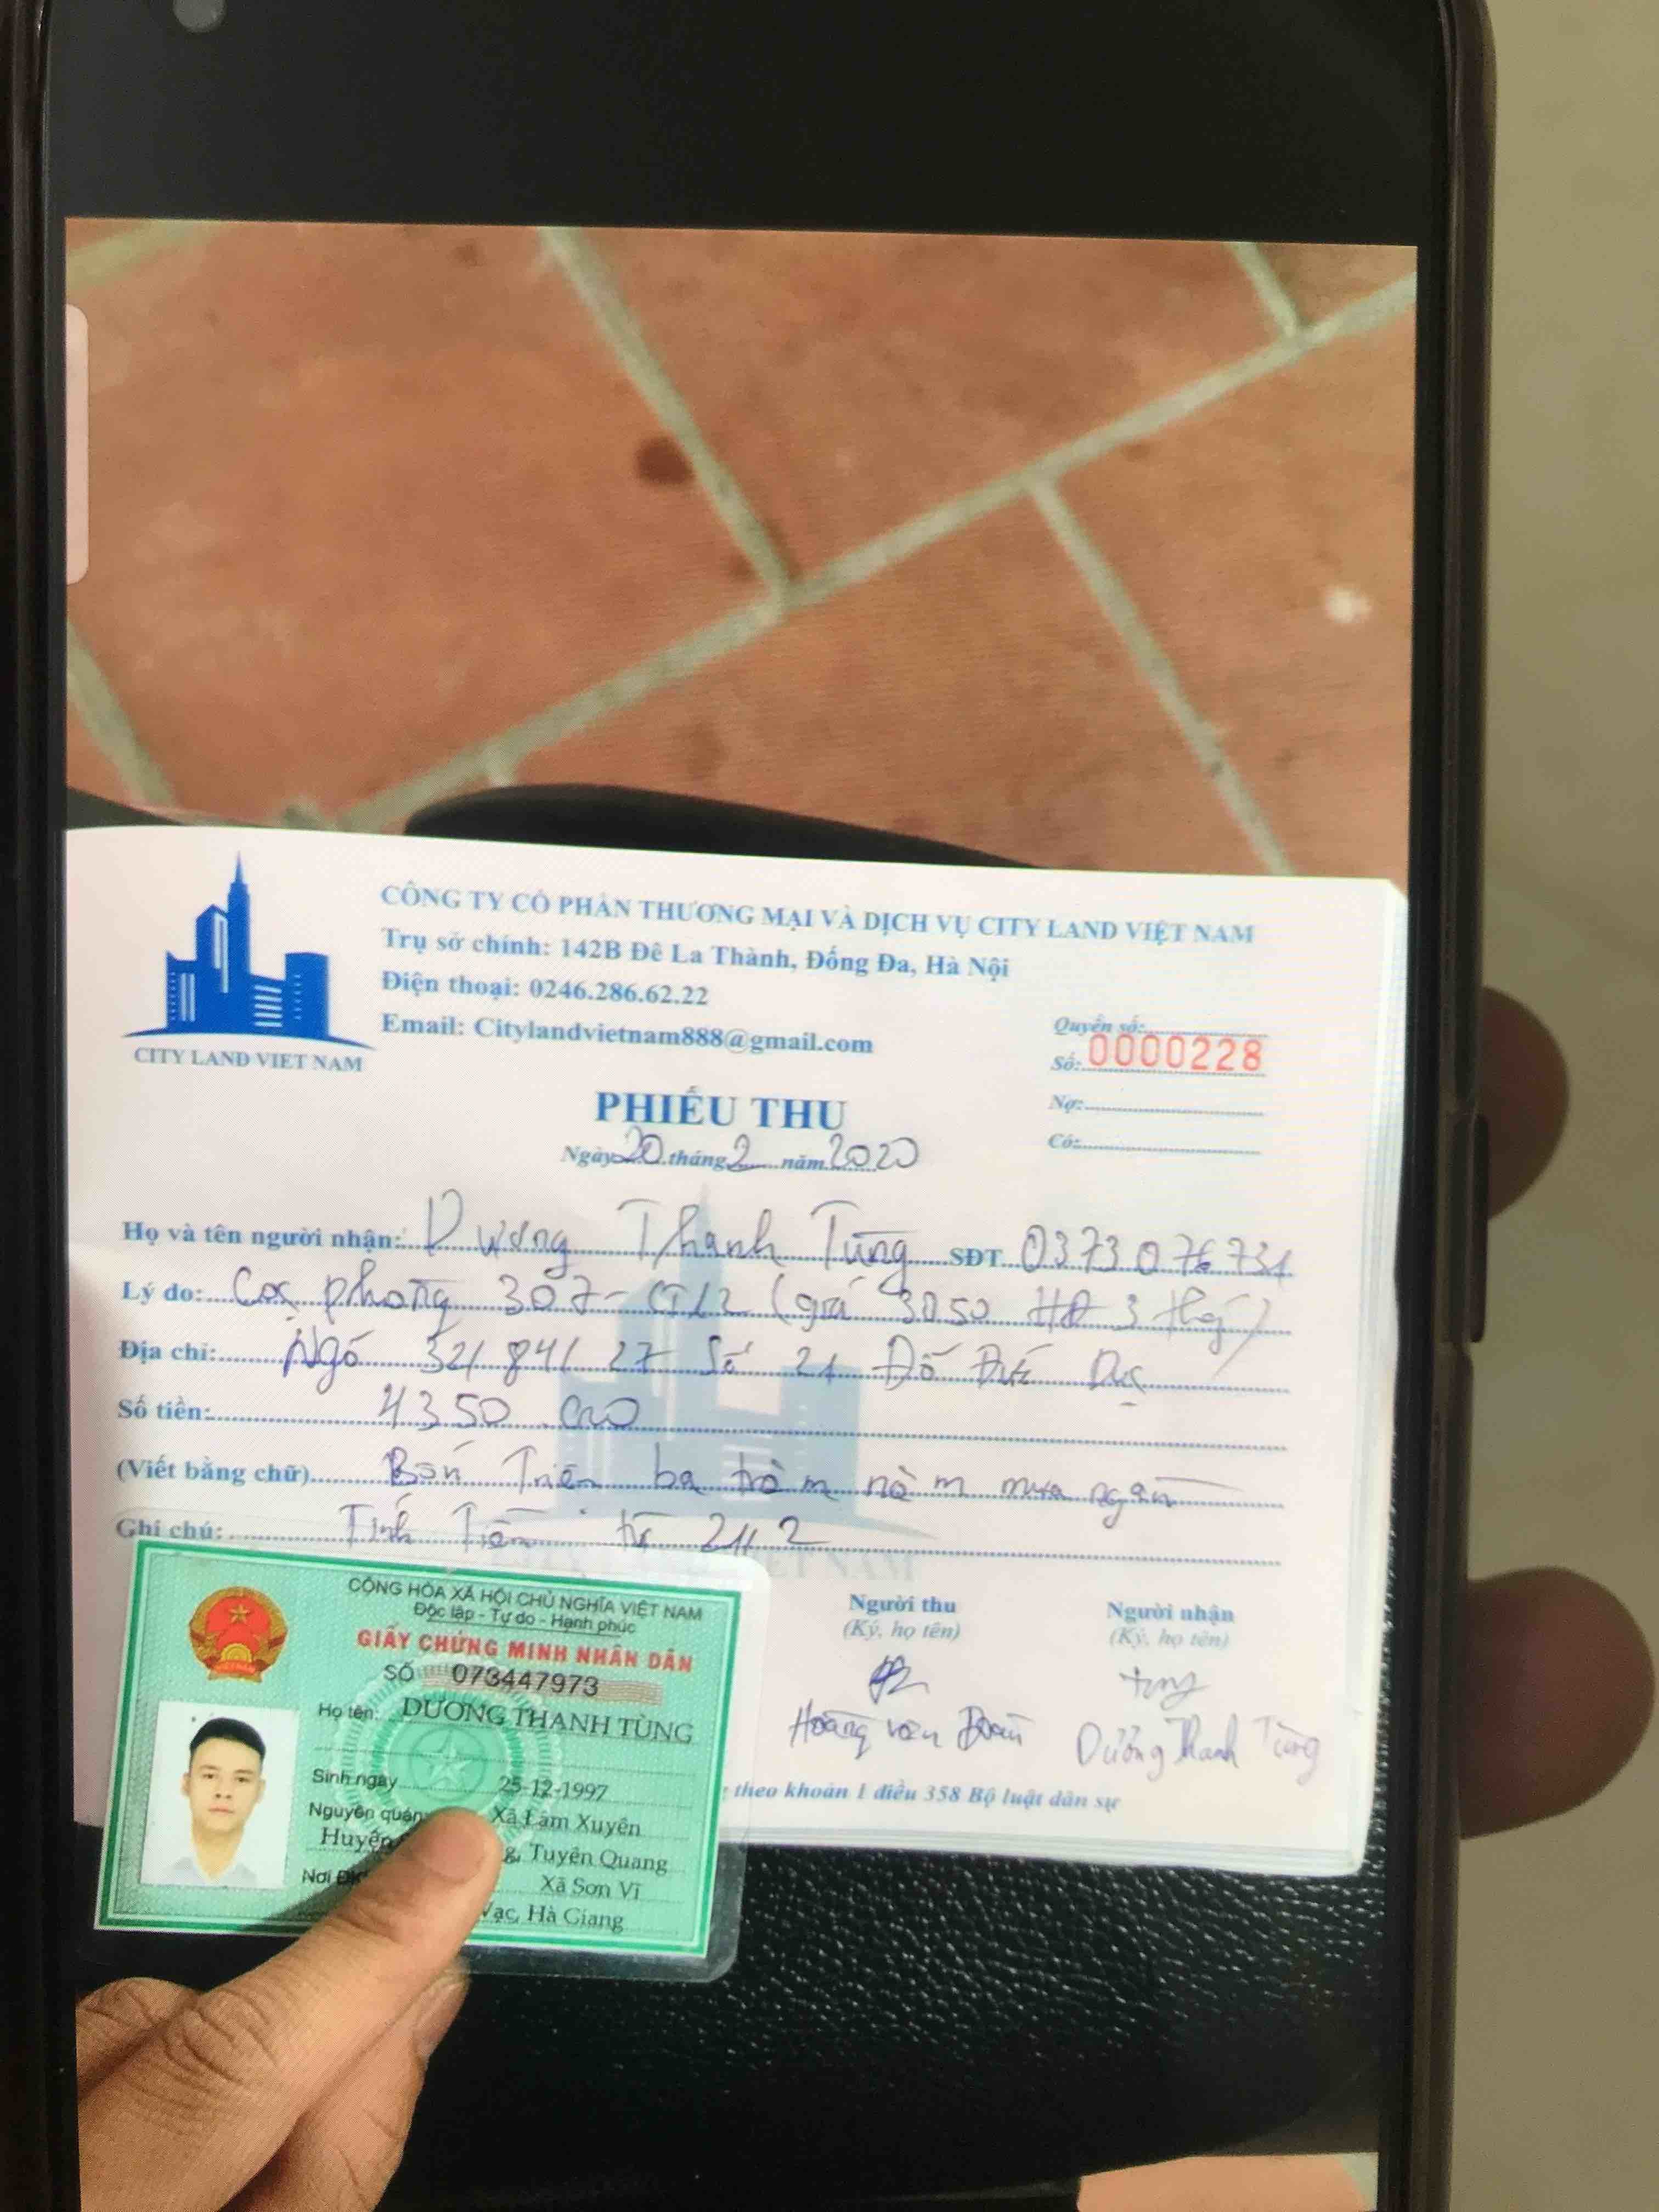 CÔNG TY CỔ PHẦN THƯƠNG MẠI VÀ DỊCH VỤ CITY LAND VIỆT NAM
Trụ sở chính: 142B Đê La Thành, Đống Đa, Hà Nội
Điện thoại: 0246.286.62.22
Email: Citylandvietnam888@gmail.com
CITY LAND VIET NAM
Quyển số:
Số: 0000228
Nợ:
Có:
PHIẾU THU
Ngày 20 tháng 2 năm 2020
Họ và tên người nhận: Dương Thanh Tùng SĐT 0373076731
Lý do: Cọc phòng 307- (giá 3050 HĐ 3 tháng)
Địa chỉ: Ngõ 32/84/27 Số 21 Đỗ Đức Dục
Số tiền: 4350.000
(Viết bằng chữ) Bốn Triệu ba trăm năm mươi ngàn
Ghi chú: Tính Tiền từ 21/2
Người thu
(Ký, họ tên)
Hoàng Văn
Người nhận
(Ký, họ tên)
Tùng
Dương Thanh Tùng
theo khoản 1 điều 358 Bộ luật dân sự
CỘNG HÒA XÃ HỘI CHỦ NGHĨA VIỆT NAM
Độc lập - Tự do - Hạnh phúc
GIẤY CHỨNG MINH NHÂN DÂN
SỐ 073447973
Họ tên: DƯƠNG THANH TÙNG
Sinh ngày 25-12-1997
Nguyên quán: Xã Lâm Xuyên
Huyện g, Tuyên Quang
Nơi ĐK Xã Sơn Vĩ
Vạc, Hà Giang